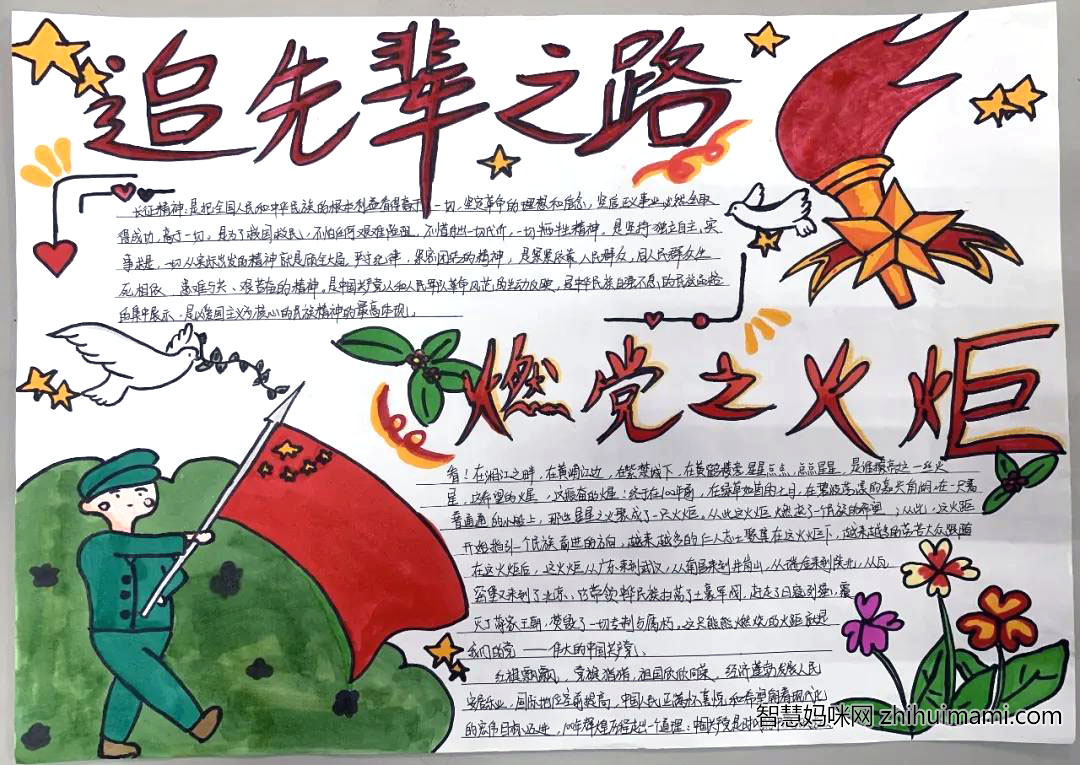 追先辈之路
长征精神：是把全国人民和中华民族的根本利益看得高于一切，坚定革命的理想和信念，坚信正义事业必然会取
得成功，高于一切。是为了救国救民，不怕任何艰难险阻，不惜付出一切代价，一切牺牲精神，是坚持独立自主、实
事求是，一切从实际出发的精神就是顾全大局、严守纪律，紧密团结的精神，是紧紧依靠人民群众，同人民群众生
死相依、患难与共、艰苦奋的精神。是中国共产党人和人民军队革命风范的生动反映，是中华民族自强不息的民族品格
的集中展示，是以爱国主义为核心的民族精神的最高体现。
燃党之火炬
看！在湘江之畔，在黄浦江边，在紫禁城下，在黄鹤楼旁，星星点点，点点星星，是谁携带之一丝火
星，这希望的火星，这振奋的火星：终于在100年前，在绿草如茵的七月，在碧波荡漾的嘉兴南湖，在一只普
普通通的小船上，那些星星之火聚成了一只火炬，从此这火炬燃起了一个民族的希望；从此，这火炬
开始指引一个民族奋进的方向，越来越多的仁人志士聚集在这火炬下，越来越多的劳苦大众跟随
在这火炬后，这火炬从广东来到武汉，从南昌来到井岗山，从瑞金来到陕北，从瓦
窑堡又来到了北京，它带领中华民族扫荡了土豪军阀，赶走了日寇列强，覆
灭了蒋家王朝，焚毁了一切专制与腐朽。这只熊熊燃烧的火炬就是
我们的党——伟大的中国共产党。
红旗飘飘，党旗猎猎，祖国欣欣向荣，经济蓬勃发展人民
安居乐业，国际地位空前提高，中国人民正满怀喜悦和希望朝着现代化
的宏伟目标迈进，100年辉煌历程
智慧妈咪网 zhihuimami.com